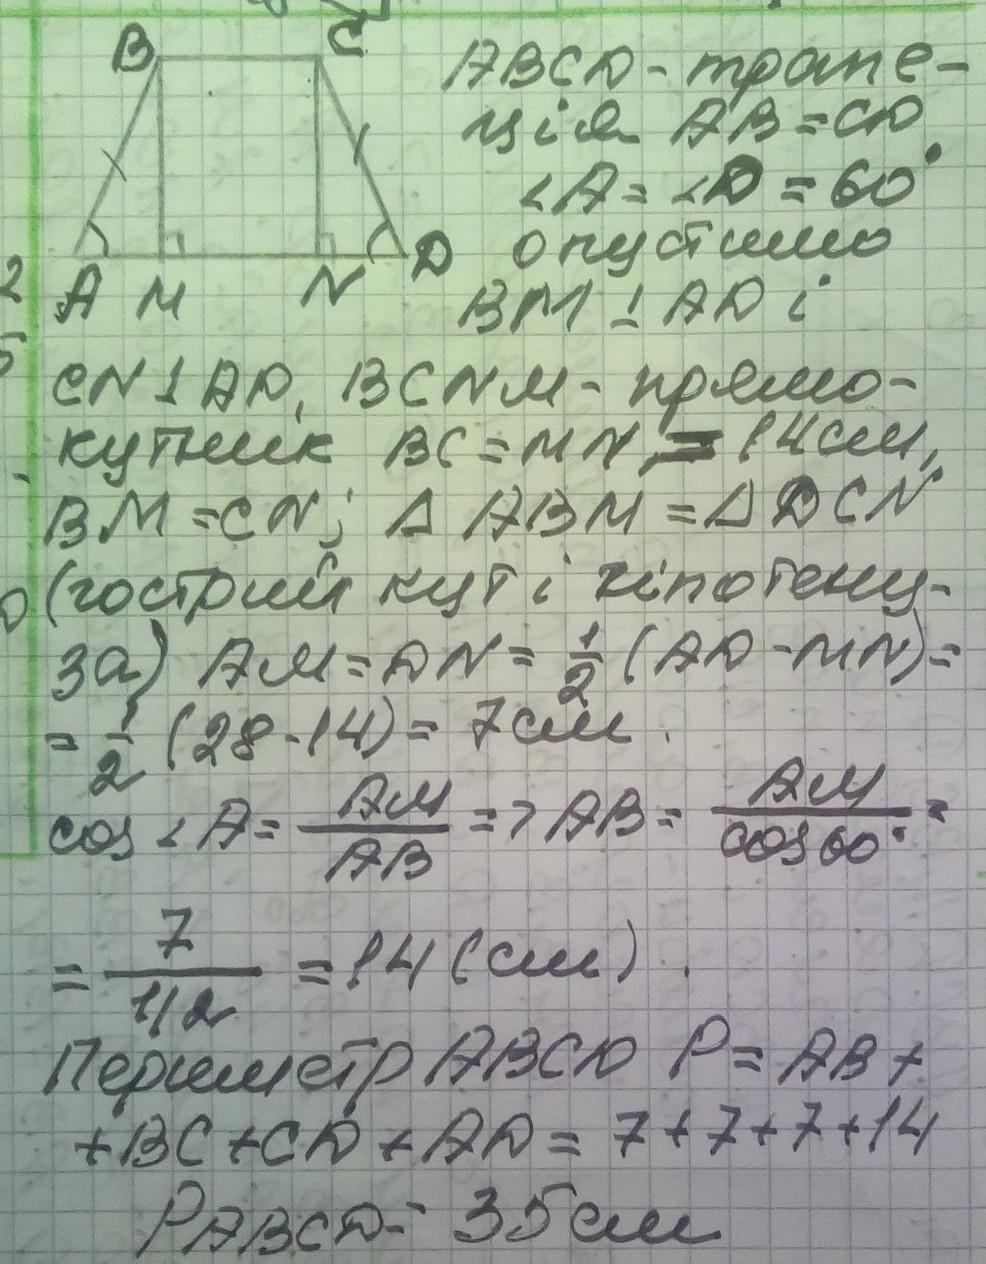 B C
ABCD - трапе-
ція AB = CD
∠A = ∠D = 60°
A M N D опустимо
BM ⊥ AD і
CN ⊥ AD, BCNM - прямо-
кутник BC = MN = 14 см,
BM = CN; Δ ABM = Δ DCN
(гострий кут і гіпотену-
за) AM = DN = 1/2 (AD - MN) =
= 1/2 (28 - 14) = 7 см.
cos ∠A = AM/AB => AB = AM/cos 60° =
= 7/1/2 = 14 (см).
Периметр ABCD P = AB +
+ BC + CD + AD = 7 + 7 + 7 + 14
PABCD = 35 см